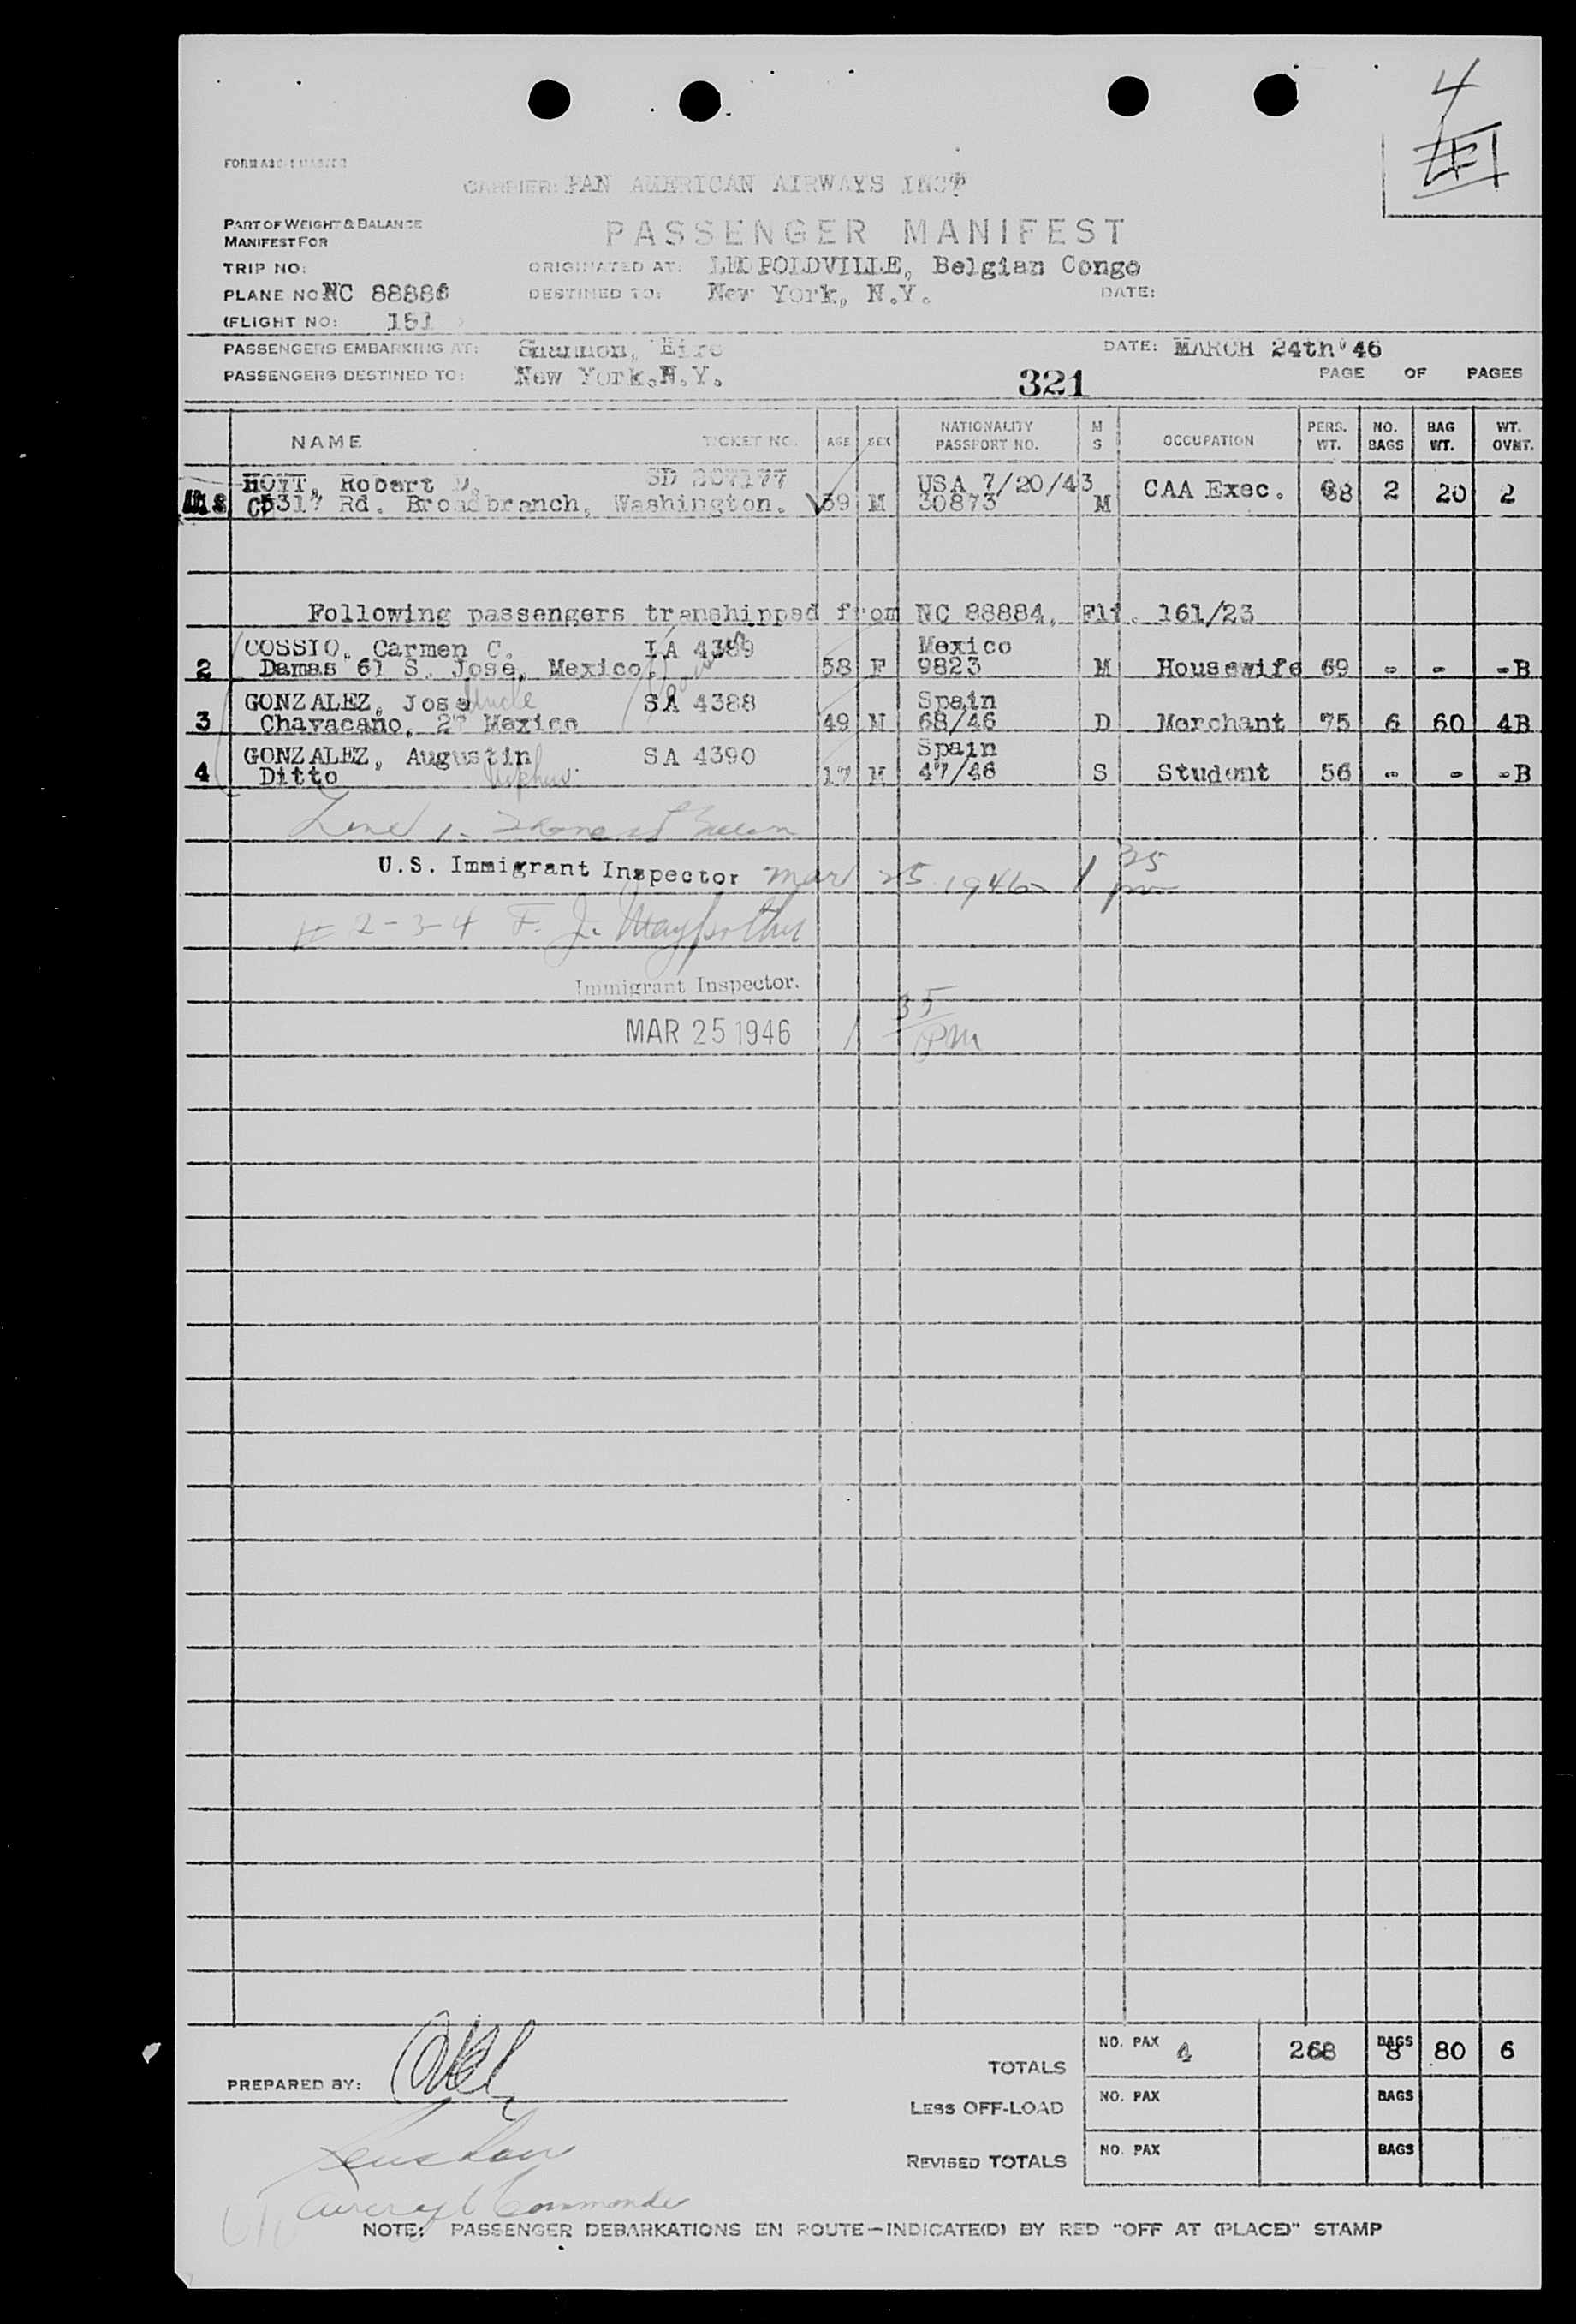 4
FORM
CARRIER: PAN AMERICAN AIRWAYS INC
PART OF WEIGHT & BALANCE
MANIFEST FOR
PASSENGER MANIFEST
TRIP NO:
ORIGINATED AT: LEOPOLDVILLE, Belgian Congo
PLANE NO: NC 88886
DESTINED TO: New York, N.Y. DATE:
(FLIGHT NO: 151 )
PASSENGERS EMBARKING AT: Shannon, Eire DATE: MARCH 24th '46
PASSENGERS DESTINED TO: New York.N.Y. 321 PAGE OF PAGES
NAME TICKET NO. AGE SEX NATIONALITY PASSPORT NO. M S OCCUPATION PERS. WT. NO. BAGS BAG WT. WT. OVNT.
HOYT, Robert D. USA 7/20/43
5317 Rd. Broadbranch, Washington. 39 M 30873 M CAA Exec. 68 2 20 2
Following passengers transhipped from NC 88884, Flt. 161/23
COSSIO, Carmen C. LA 4389 Mexico
2 Damas 61 S. Jose, Mexico. 58 F 9823 M Housewife 69 - - -B
GONZALEZ, Jose Uncle SA 4388 Spain
3 Chavacano, 27 Mexico 49 M 68/46 D Merchant 75 6 60 4B
GONZALEZ, Augustin SA 4390 Spain
4 Ditto Nephew 17 M 47/46 S Student 56 - - -B
Line 1-
U.S. Immigrant Inspector Mar 25 1946 1 35 pm
# 2-3-4 F. J. Maypother
Immigrant Inspector.
MAR 25 1946 1 35 PM
NO. PAX 4 268 BAGS 8 80 6
TOTALS
PREPARED BY:
NO. PAX BAGS
LESS OFF-LOAD
NO. PAX BAGS
REVISED TOTALS
Aircraft Commander
NOTE: PASSENGER DEBARKATIONS EN ROUTE—INDICATE(D) BY RED "OFF AT (PLACE)" STAMP